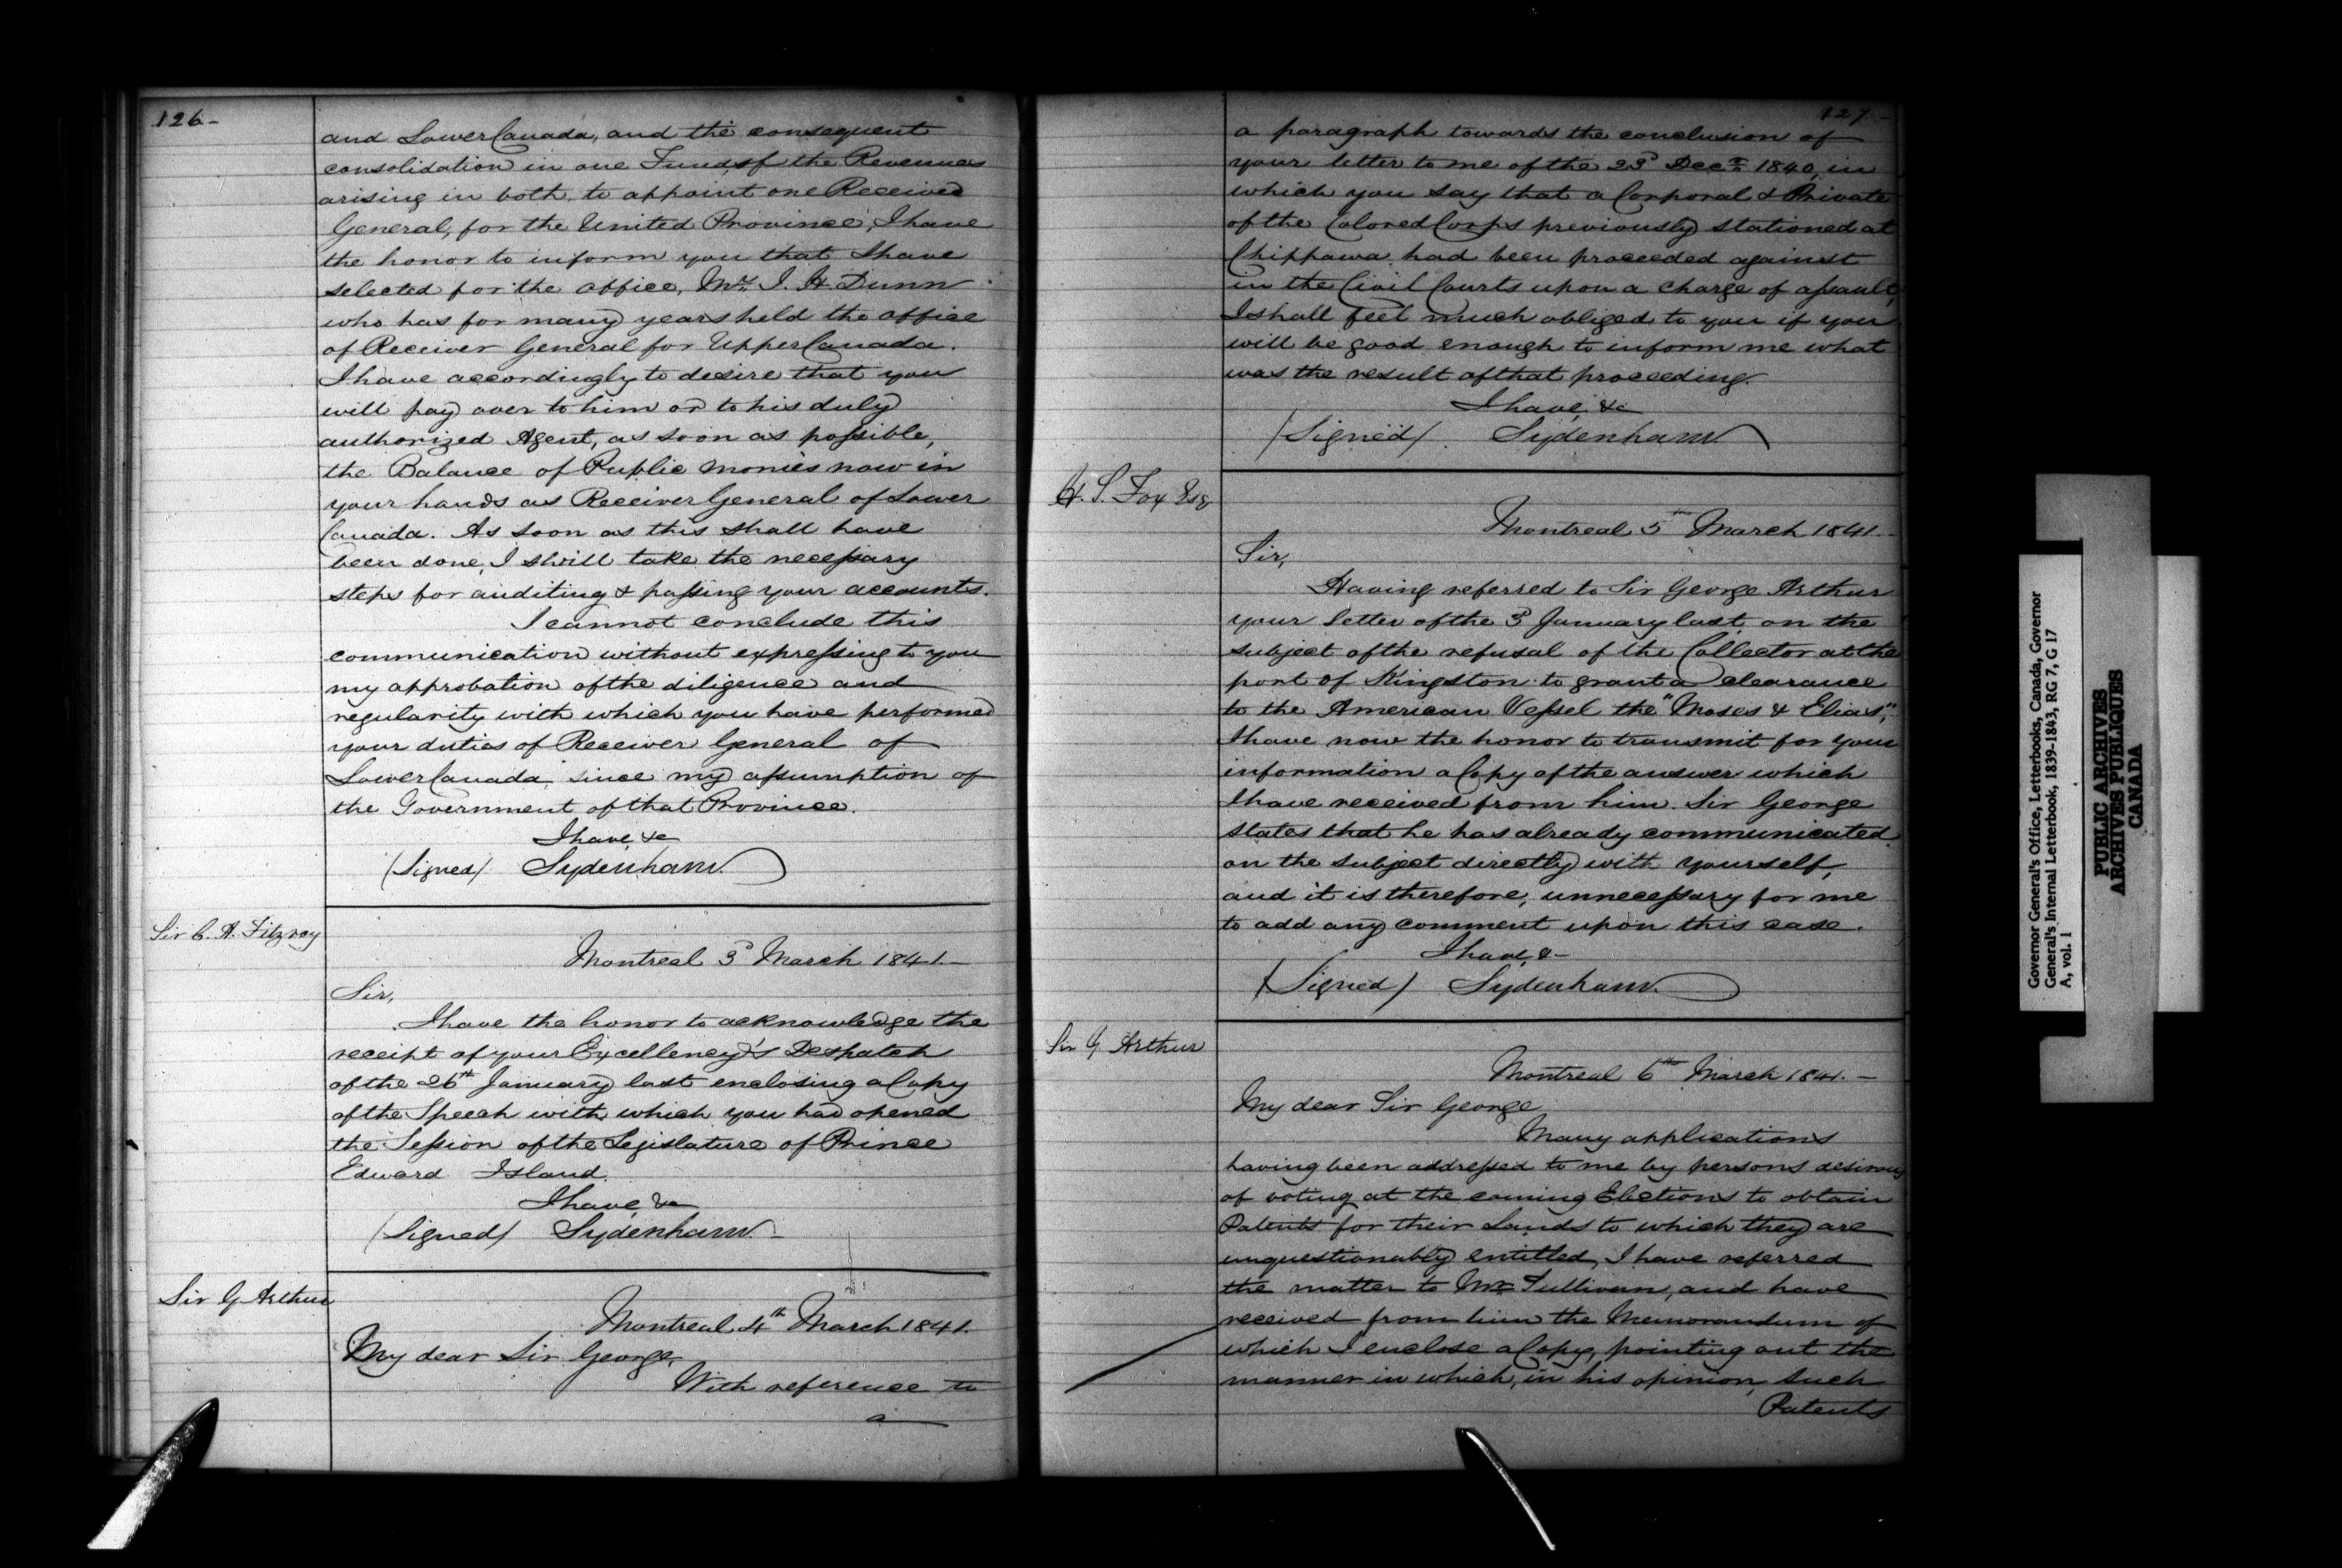 126-
and Lower Canada, and the consequent
consolidation in one Fund, of the Revenues
arising in both, to appoint one Receiver
General, for the United Province, I have
the honor to inform you that I have
selected for the office, Mr. J. H. Dunn
who has for many years held the office
of Receiver General for Upper Canada.
I have accordingly to desire that you
will pay over to him or to his duly
authorized Agent, as soon as possible,
the Balance of Public monies now in
your hands as Receiver General of Lower
Canada. As soon as this shall have
been done, I shall take the necessary
steps for auditing & passing your accounts.
I cannot conclude this
communication without expressing to you
my approbation of the diligence and
regularity with which you have performed
your duties of Receiver General of
Lower Canada, since my assumption of
the Government of that Province.
I have &c
(Signed) Sydenham.
Sir C. A. Fitzroy
Montreal 3d March 1841.-
Sir,
I have the honor to acknowledge the
receipt of your Excellency's Despatch
of the 26th January last enclosing a Copy
of the Speech with which you had opened
the Session of the Legislature of Prince
Edward Island.
I have &c
(Signed) Sydenham.
Sir G Arthur
Montreal 4th March 1841.
My dear Sir George,
With reference to
a
127-
a paragraph towards the conclusion of
your letter to me of the 23d Decr. 1840, in
which you say that a Corporal & Private
of the Colored Corps previously stationed at
Chippawa had been proceeded against
in the Civil Courts upon a charge of assault,
I shall feel much obliged to you if you
will be good enough to inform me what
was the result of that proceeding.
I have &c
(Signed) Sydenham
H. S. Fox Esq
Montreal 5th March 1841.-
Sir,
Having referred to Sir George Arthur
your letter of the 3d January last, on the
subject of the refusal of the Collector at the
port of Kingston to grant a clearance
to the American Vessel the "Moses & Elias",
I have now the honor to transmit for your
information a Copy of the answer which
I have received from him. Sir George
states that he has already communicated
on the subject directly with yourself,
and it is therefore, unnecessary for me
to add any comment upon this case.
I have &-
(Signed) Sydenham.
Sir G Arthur
Montreal 6th March 1841.-
My dear Sir George
Many applications
having been addressed to me by persons desirous
of voting at the coming Elections to obtain
Patents for their Lands to which they are
unquestionably entitled, I have referred
the matter to Mr Sullivan, and have
received from him the Memorandum of
which I enclose a Copy, pointing out the
manner in which, in his opinion, such
Patents
Governor General's Office, Letterbooks, Canada, Governor
General's Internal Letterbook, 1839-1843, RG 7, G 17
A, vol. 1
PUBLIC ARCHIVES
ARCHIVES PUBLIQUES
CANADA